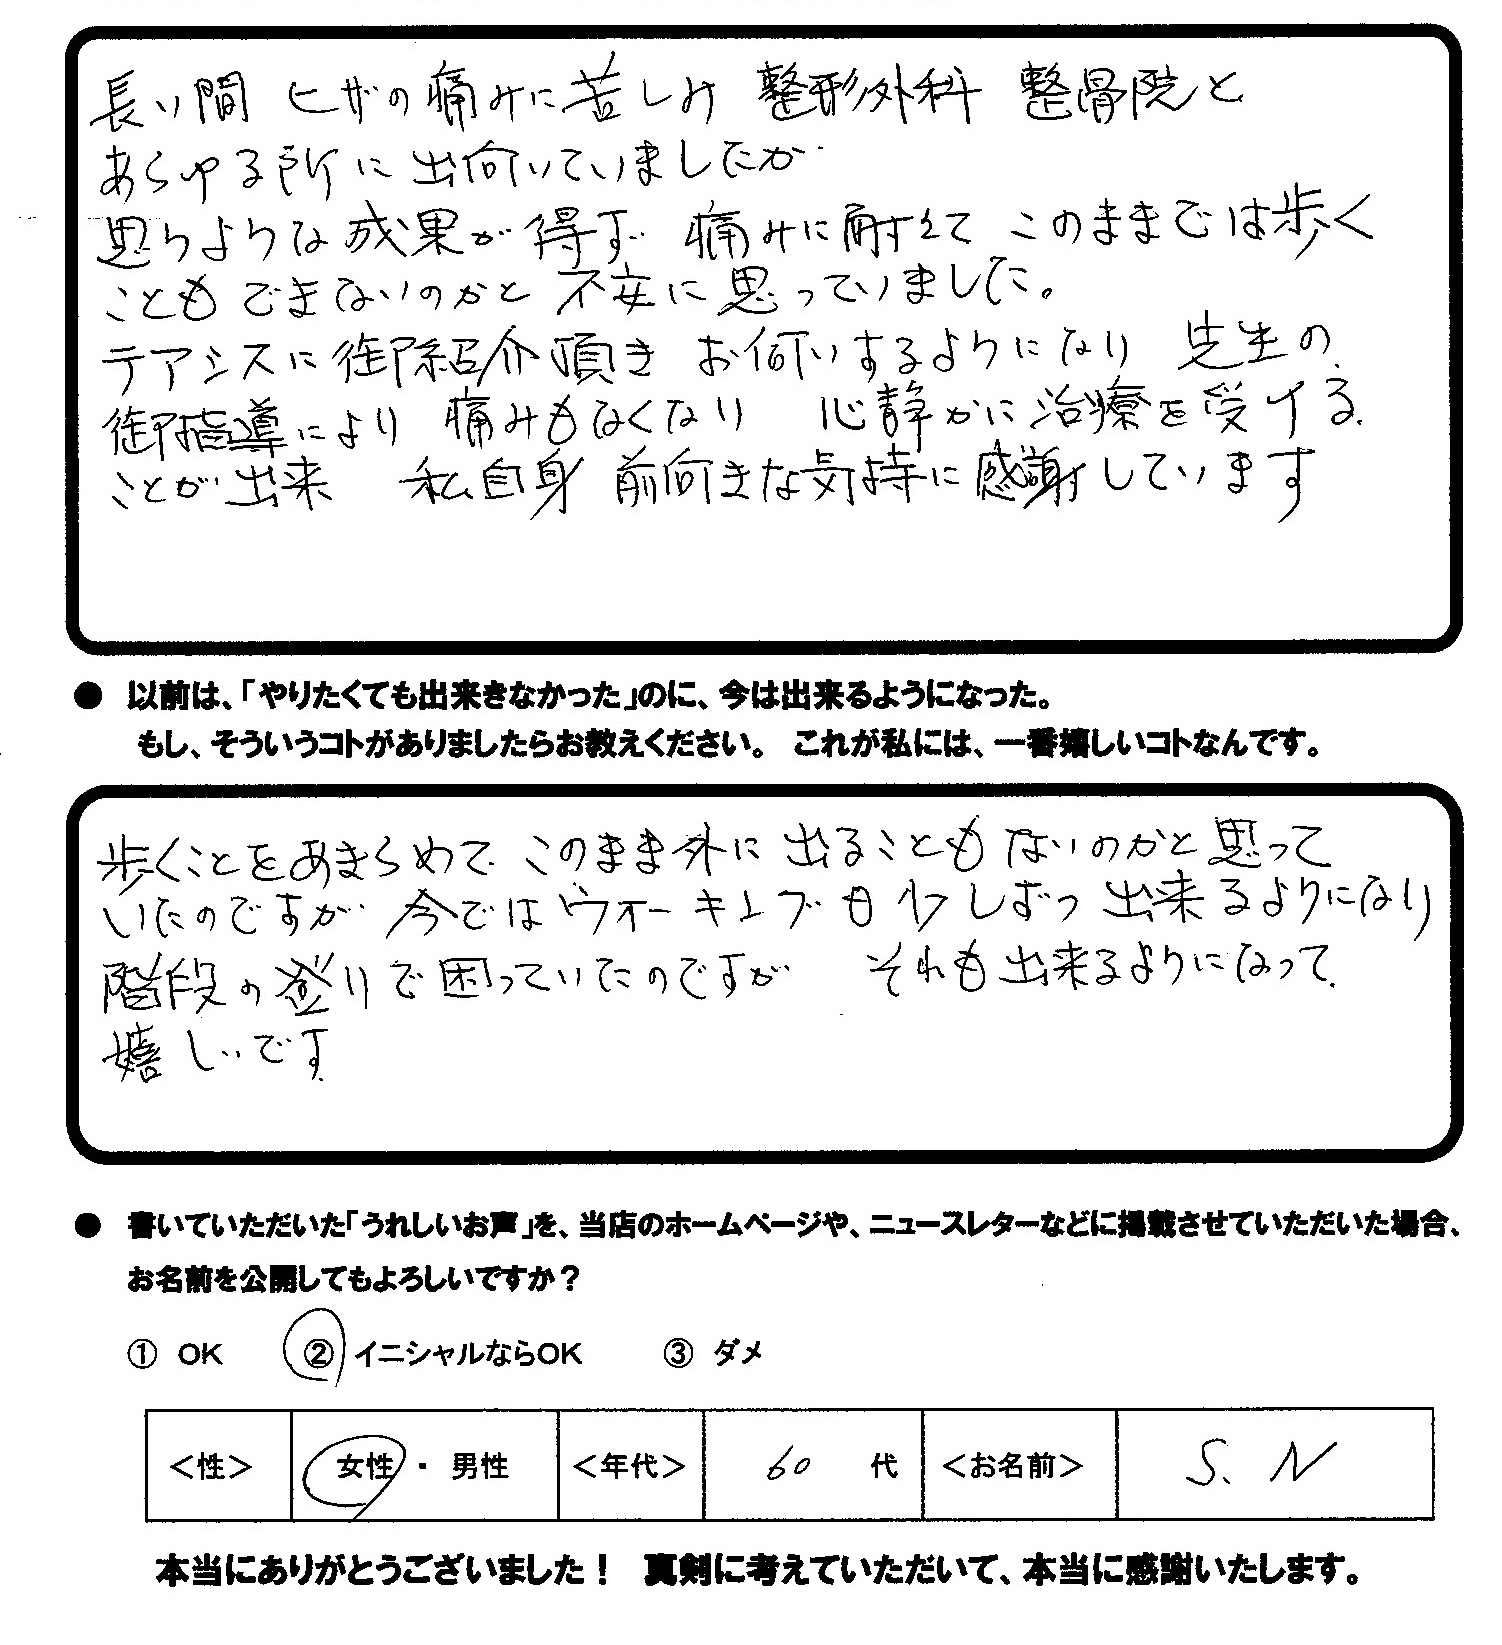 長い間 ヒザの痛みに苦しみ 整形外科 整骨院と
あらゆる所に出向いていましたが
思うような成果が得ず 痛みに耐えて このままでは歩く
こともできないのかと 不安に思っていました。
テアシスに御紹介頂き お伺いするようになり 先生の
御指導により 痛みもなくなり 心静かに治療を受ける
ことが出来 私自身 前向きな気持に感謝しています
● 以前は、「やりたくても出来きなかった」のに、今は出来るようになった。
もし、そういうコトがありましたらお教えください。 これが私には、一番嬉しいコトなんです。
歩くことをあきらめて このまま外に出ることもないのかと思って
いたのですが 今ではウォーキングも少しずつ出来るようになり
階段の登りで困っていたのですが それも出来るようになって
嬉しいです
● 書いていただいた「うれしいお声」を、当店のホームページや、ニュースレターなどに掲載させていただいた場合、
お名前を公開してもよろしいですか？
① OK ② イニシャルならOK ③ ダメ
＜性＞ 女性 ・ 男性 ＜年代＞ 60 代 ＜お名前＞ S. N
本当にありがとうございました！ 真剣に考えていただいて、本当に感謝いたします。